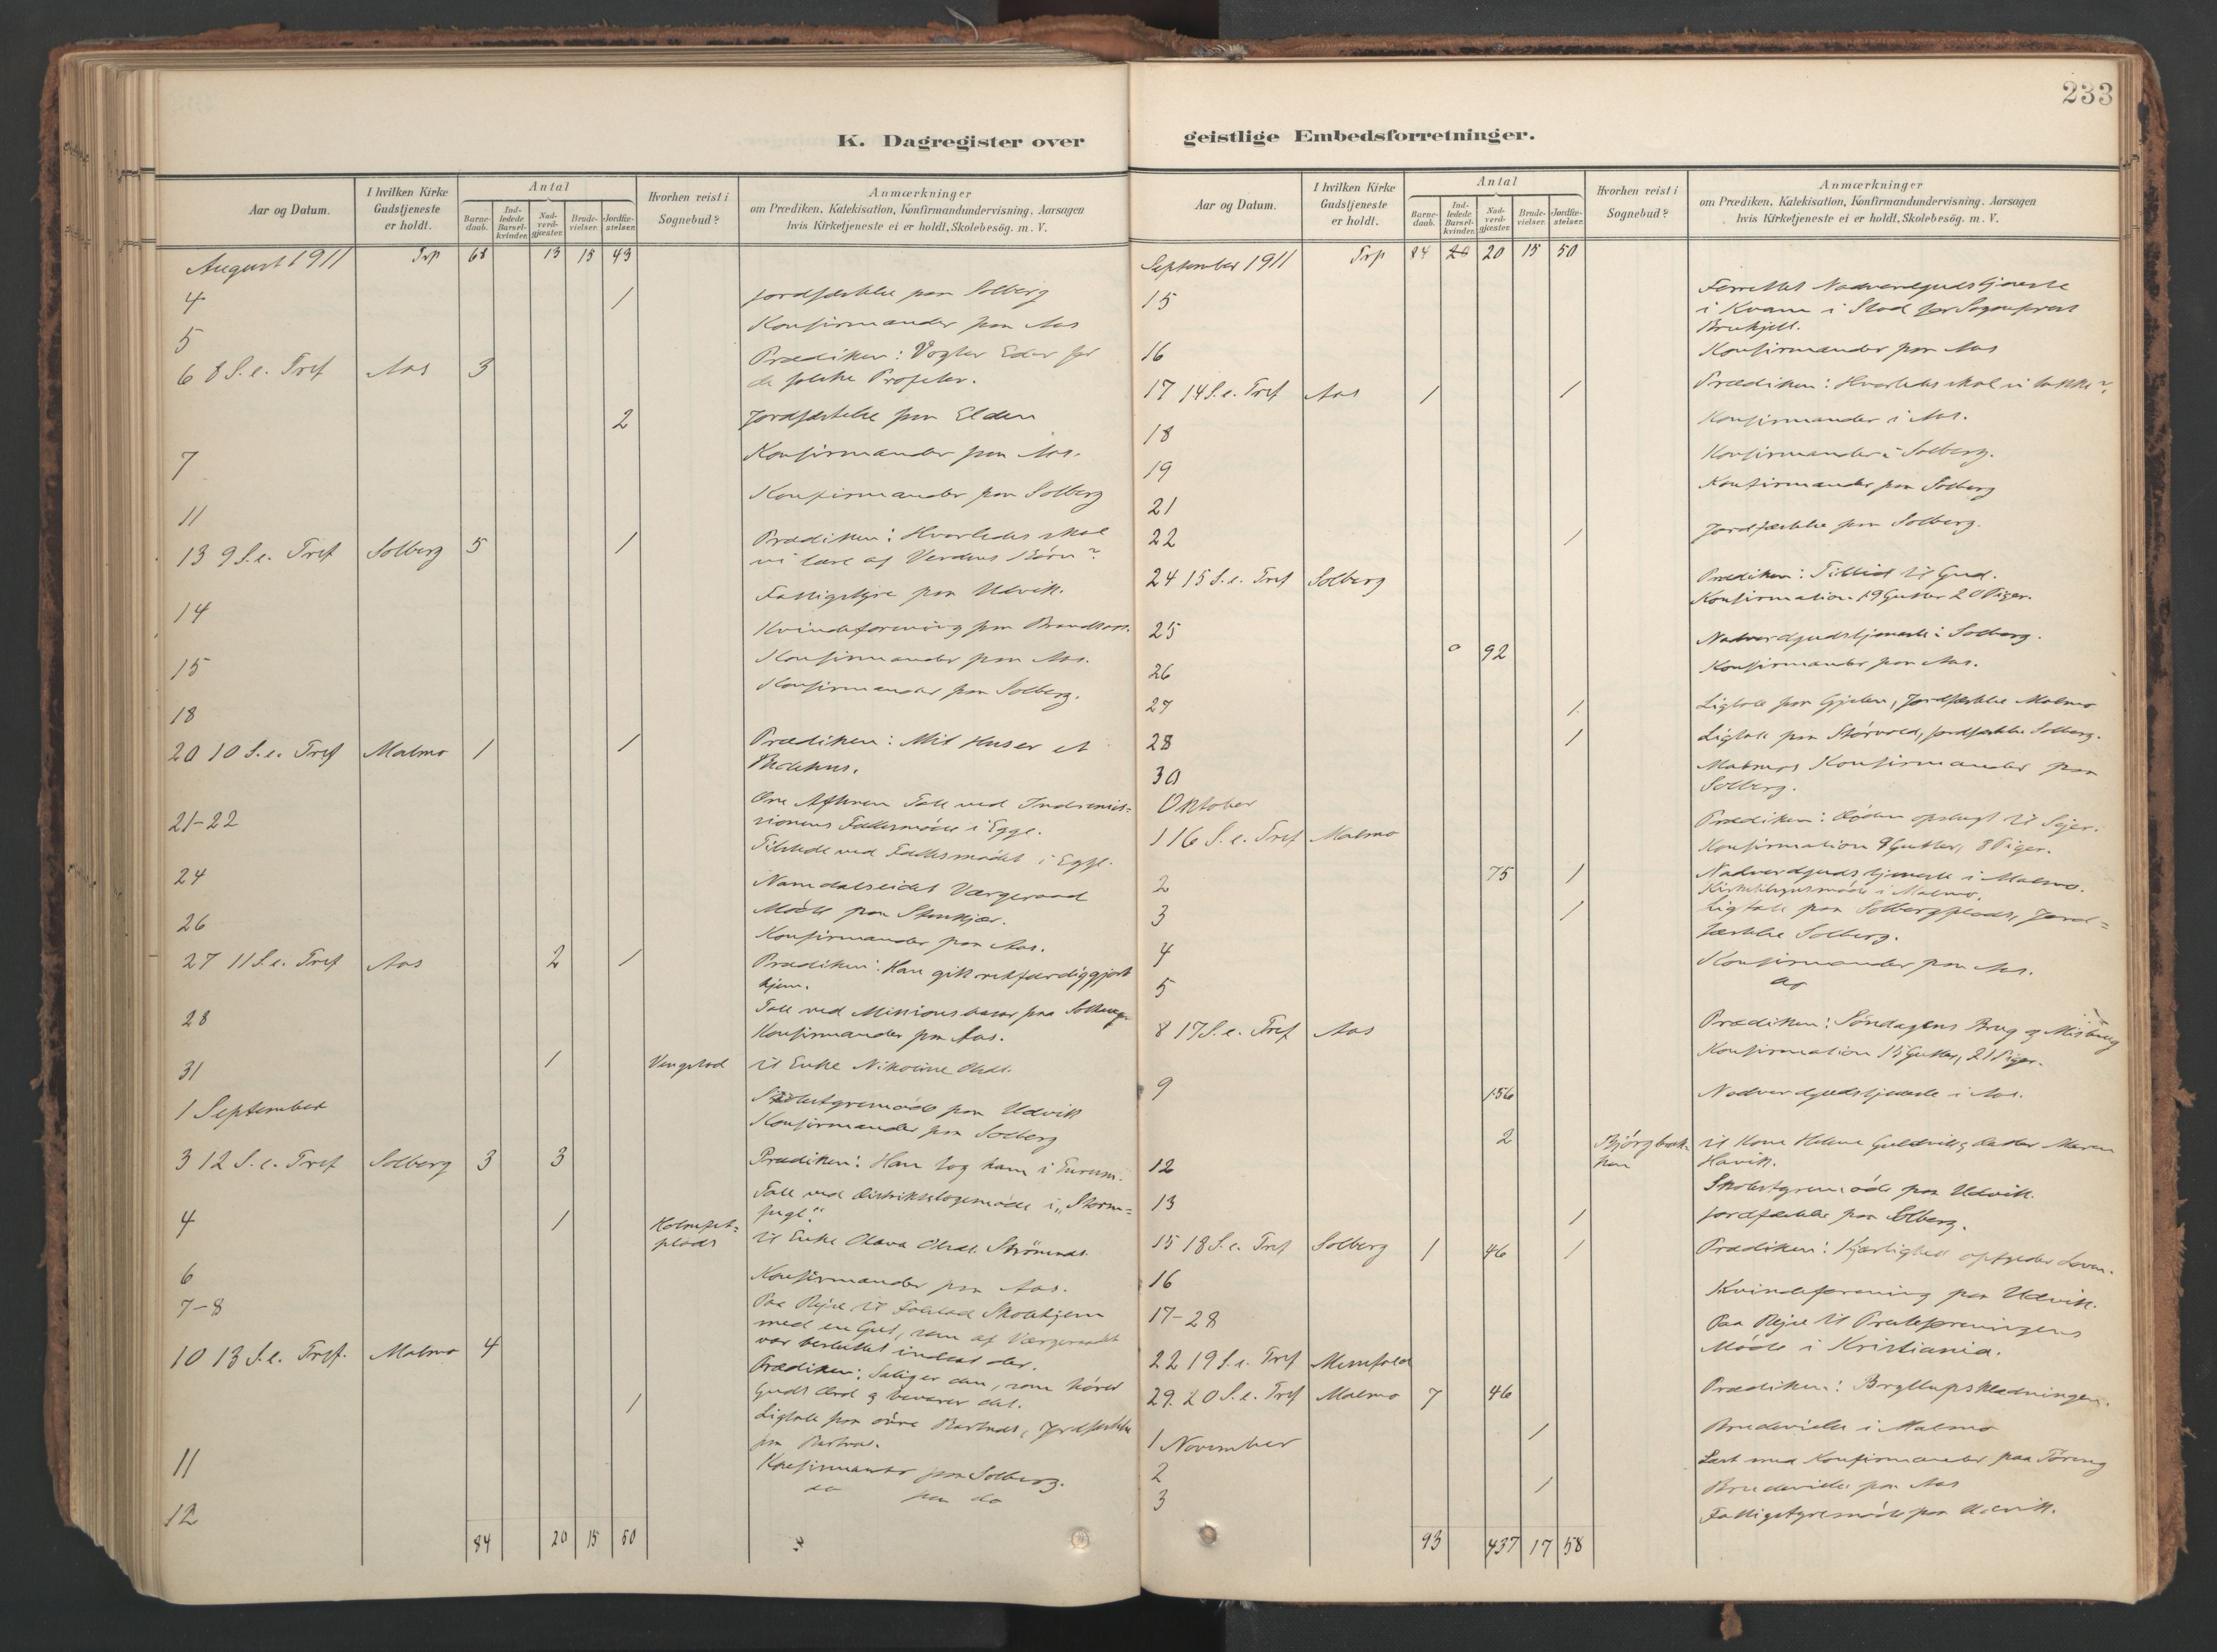 233
K. Dagregister over
geistlige Embedsforretninger.
Aar og Datum.
I hvilken Kirke Gudstjeneste er holdt.
Antal
Barne-daab.
Ind-ledede Barsel-kvinder.
Nad-verd-gjæster.
Brude-vielser.
Jordfæ-stelser.
Hvorhen reist i Sognebud?
Anmærkninger
om Prædiken, Katekisation, Konfirmandundervisning, Aarsagen
hvis Kirketjeneste ei er holdt, Skolebesög. m. V.
August 1911 Trp 68 13 15 43
4 1 Jordfæstelse paa Solberg
5 Konfirmander paa Aas
6 8 S. e. Tref Aas 3 Prædiken: Vogter Eder for
de falske Profeter.
2 Jordfæstelse paa Elden
7 Konfirmander paa Aas.
11 Konfirmander paa Solberg
13 9 S. e. Tref Solberg 5 1 Prædiken: Hvorledes skal
vi lære af Verdens Børn?
14 Fattigstyre paa Udvik.
Kvindeforening paa
15 Konfirmander paa Aas.
18 Konfirmander paa Solberg.
20 10 S. e. Tref Malmo 1 1 Prædiken: Mit Hus er et
Bedehus.
21-22 Tale ved Indremis-
sionens Fællesmøde i Egge.
Tilstede ved Fællesmødet i Egge.
24 Namdalseidet Værgeraad
26 Møde paa Stenkjær.
Konfirmander paa Aas.
27 11 S. e. Tref Aas 2 1 Prædiken: Han gik retfærdiggjort
hjem.
28 Tale ved Missionsbasar paa Solberg
Konfirmander paa Aas.
31 1 Vengstad til Enke Nikoline Olsdt.
1 September Skolestyremøde paa Udvik
Konfirmander paa Solberg
3 12 S. e. Tref Solberg 3 3 Prædiken: Han tog ham i Enrum.
Tale ved Distriktslogemøde i "Storm-
fugl".
4 1 Holmset-
plads til Enke Olava Olsdt. Strömnes.
6 Konfirmander paa Aas.
7-8 Paa Rejse til Falstad Skolehjem
med en Gut, som af Værgeraadet
var besluttet indsat der.
10 13 S. e. Tref. Malmo 4 Prædiken: Salig er den, som hører
Guds Ord og bevarer det.
1 Ligtale paa øvre Jordfæstelse
paa
11 Konfirmander paa Solberg.
12 do paa do
84 20 15 50
Aar og Datum.
I hvilken Kirke Gudstjeneste er holdt.
Antal
Barne-daab.
Ind-ledede Barsel-kvinder.
Nad-verd-gjæster.
Brude-vielser.
Jordfæ-stelser.
Hvorhen reist i Sognebud?
Anmærkninger
om Prædiken, Katekisation, Konfirmandundervisning, Aarsagen
hvis Kirketjeneste ei er holdt, Skolebesög. m. V.
September 1911 Trp 84 20 20 15 50
15 Forrettet Nadverdgudstjeneste
i Kvam i Stod for Sogneprest
16 Konfirmander paa Aas
17 14 S. e. Tref Aas 1 1 Prædiken: Hvorledes skal vi takke?
18 Konfirmander i Aas.
19 Konfirmander i Solberg.
21 Konfirmander paa Solberg
22 1 Jordfæstelse paa Solberg.
24 15 S. e. Tref Solberg Prædiken: Tillid til Gud.
Konfirmation. 19 Gutter 20 Piger.
25 0 92 Nadverdgudstjeneste i Solberg.
26 Konfirmander paa Aas.
27 1 Ligtale paa Gjelen, Jordfæstelse Malmo
28 1 Ligtale paa Störvold, Jordfæstelse Solberg.
30 Malmos Konfirmander paa
Solberg.
Oktober
1 16 S. e. Tref Malmo Prædiken: Døden opslugt til Sejer.
Konfirmation 9 Gutter, 8 Piger.
2 75 1 Nadverdgudstjeneste i Malmo.
Kirketilsynsmøde i Malmo.
3 1 Ligtale paa Solbergplads, Jord-
fæstelse Solberg.
4 Konfirmander paa Aas.
5 do
8 17 S. e. Tref Aas Prædiken: Søndagens Brug og Misbrug
Konfirmation 15 Gutter, 21 Piger.
9 156 Nadverdgudstjeneste i Aas.
2 Bjørgbæk-
ken til Kone Helene Guldvik og datter Maren
12 Havik.
13 Skolestyremøde paa Udvik.
1 Jordfæstelse paa Solberg.
15 18 S. e. Tref Solberg 1 46 1 Prædiken: Kjærlighed opfylder Loven.
16 Kvindeforening paa Udvik.
17-28 Paa Rejse til Presteforeningens
Møde i Kristiania.
22 19 S. e. Tref Messefald
29. 20 S. e. Tref Malmo 7 46 Prædiken: Bryllupsklædningen.
1 November 1 Brudevielse i Malmo
2 Læst med Konfirmander paa Töring
3 1 Brudevielse paa Aas
Fattigstyremøde paa Udvik.
93 437 17 58